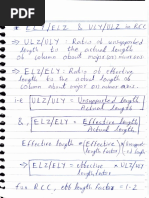 * ELY/ELZ & ULY/ULZ in RCC
⇒ ULZ/ULY : Ratio of unsupported
length to the actual length
of column about major and minor axis.
⇒ ELZ/ELY : Ratio of effective
length to the actual length
of column about major and minor axis.
i.e ULZ/ULY = Unsupported length
Actual length
& ELZ/ELY = Effective length
Actual length
Effective length = Effective length factor ×
ELZ/ELY = effective length factor × ULZ/ULY
For RCC, eff length factor = 1.2